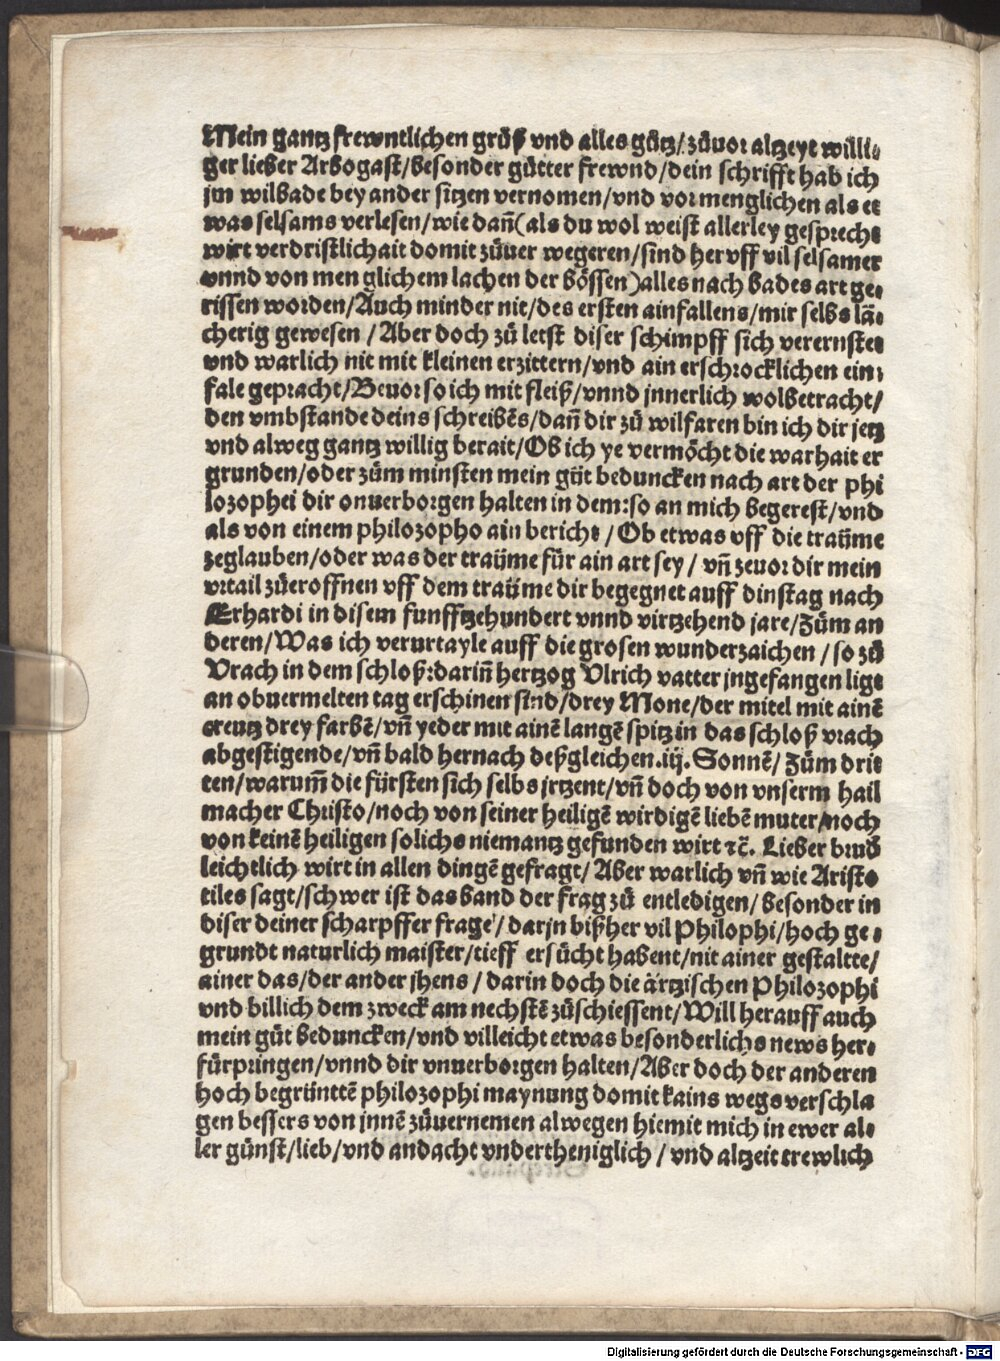 Mein gantz frewntlichen grůß vnd alles gůtz/zůuor altzeyt willi⸗
ger lieber Arbogast/besonder gůtter frewnd/dein schrifft hab ich
jm wilbade bey ander sitzen vernomen/vnd vor menglichen als et
was selsams verlesen/wie dañ(als du wol weist allerley gesprecht
wirt verdristlichait domit zůuer wegeren/sind her vff vil selsamer
vnnd von men glichem lachen der bössen)alles nach bades art ge⸗
rissen worden/Auch minder nit/des ersten ainfallens/mir selbs lā⸗
cherig gewesen/Aber doch zů letst diser schimpff sich verernstet
vnd warlich nit mit kleinen erzittern/vnd ain erschrocklichen ein⸗
fale gepracht/Beuor so ich mit fleiß/vnnd jnnerlich wolbetracht/
den vmbstande deins schreibēs/dañ dir zů wilfaren bin ich dir jetz
vnd alweg gantz willig berait/Ob ich ye vermöcht die warhait er
grunden/oder zům minsten mein gůt beduncken nach art der phi
lozophei dir onuerborgen halten in dem:so an mich begerest/vnd
als von einem philozopho ain bericht/Ob etwas vff die traůme
zeglauben/oder was der traůme für ain art sey/vñ zeuor dir mein
vrtail zůeroffnen vff dem traůme dir begegnet auff dinstag nach
Erhardi in disem funfftzehundert vnnd virtzehend jare/Zům an
deren/Was ich verurtayle auff die grosen wunderzaichen/so zů
Vrach in dem schloß:dariñ hertzog Vlrich vatter jngefangen ligt
an obuermelten tag erschinen sind/drey Mone/der mitel mit ainē
creutz drey farbē/vñ yeder mit ainē langē spitz in das schloß vrach
abgestigende/vñ bald hernach deßgleichen.iij.Sonnē/Zům drit
ten/warum̄ die fürsten sich selbs jrtzent/vñ doch von vnserm hail
macher Christo/noch von seiner heiligē wirdigē liebē muter/noch
von keinē heiligen solichs niemantz gefunden wirt ⁊c̄. Lieber brud̄
leichtlich wirt in allen dingē gefragt/Aber warlich vñ wie Aristo
tiles sagt/schwer ist das band der frag zů entledigen/besonder in
diser deiner scharpffer frage/darjn bißher vil Philophi/hoch ge⸗
grundt naturlich maister/tieff ersůcht habent/nit ainer gestaltte/
ainer das/der ander jhens/darin doch die ärtzischen Philozophi
vnd billich dem zweck am nechstē zůschiessent/Will herauff auch
mein gůt beduncken/vnd villeicht etwas besonderlichs news her⸗
fürpringen/vnnd dir vnuerborgen halten/Aber doch der anderen
hoch begrünttē philozophi maynung domit kains wegs verschla
gen bessers von jnnē zůuernemen alwegen hiemit mich in ewer al⸗
ler günst/lieb/vnd andacht vndertheniglich/vnd altzeit trewlich
Digitalisierung gefördert durch die Deutsche Forschungsgemeinschaft - DFG